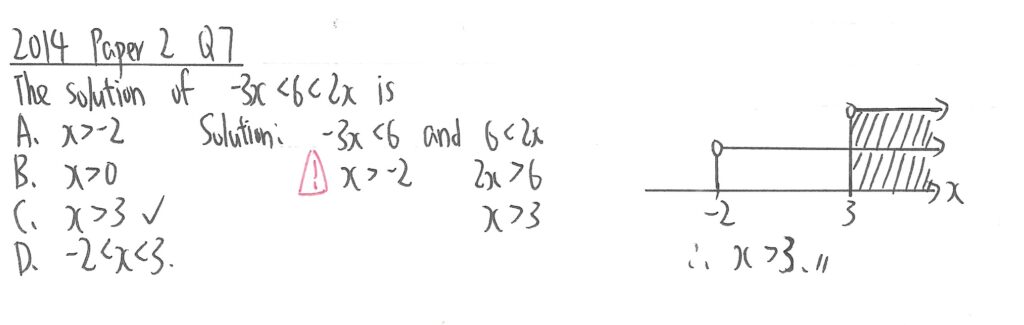 2014 Paper 2 Q7
The solution of -3x<6<2x is
A. x>-2 Solution: -3x<6 and 6<2x
B. x>0 ! x>-2 2x>6
C. x>3 ✓ x>3
D. -2<x<3.
x
-2 3
∴ x>3.〃